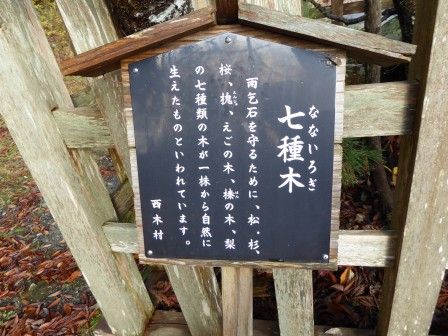 なないろぎ
七種木
雨乞石を守るために、松、杉、
桜、槐、えごの木、榛の木、梨
の七種類の木が一株から自然に
生えたものといわれています。
西木村